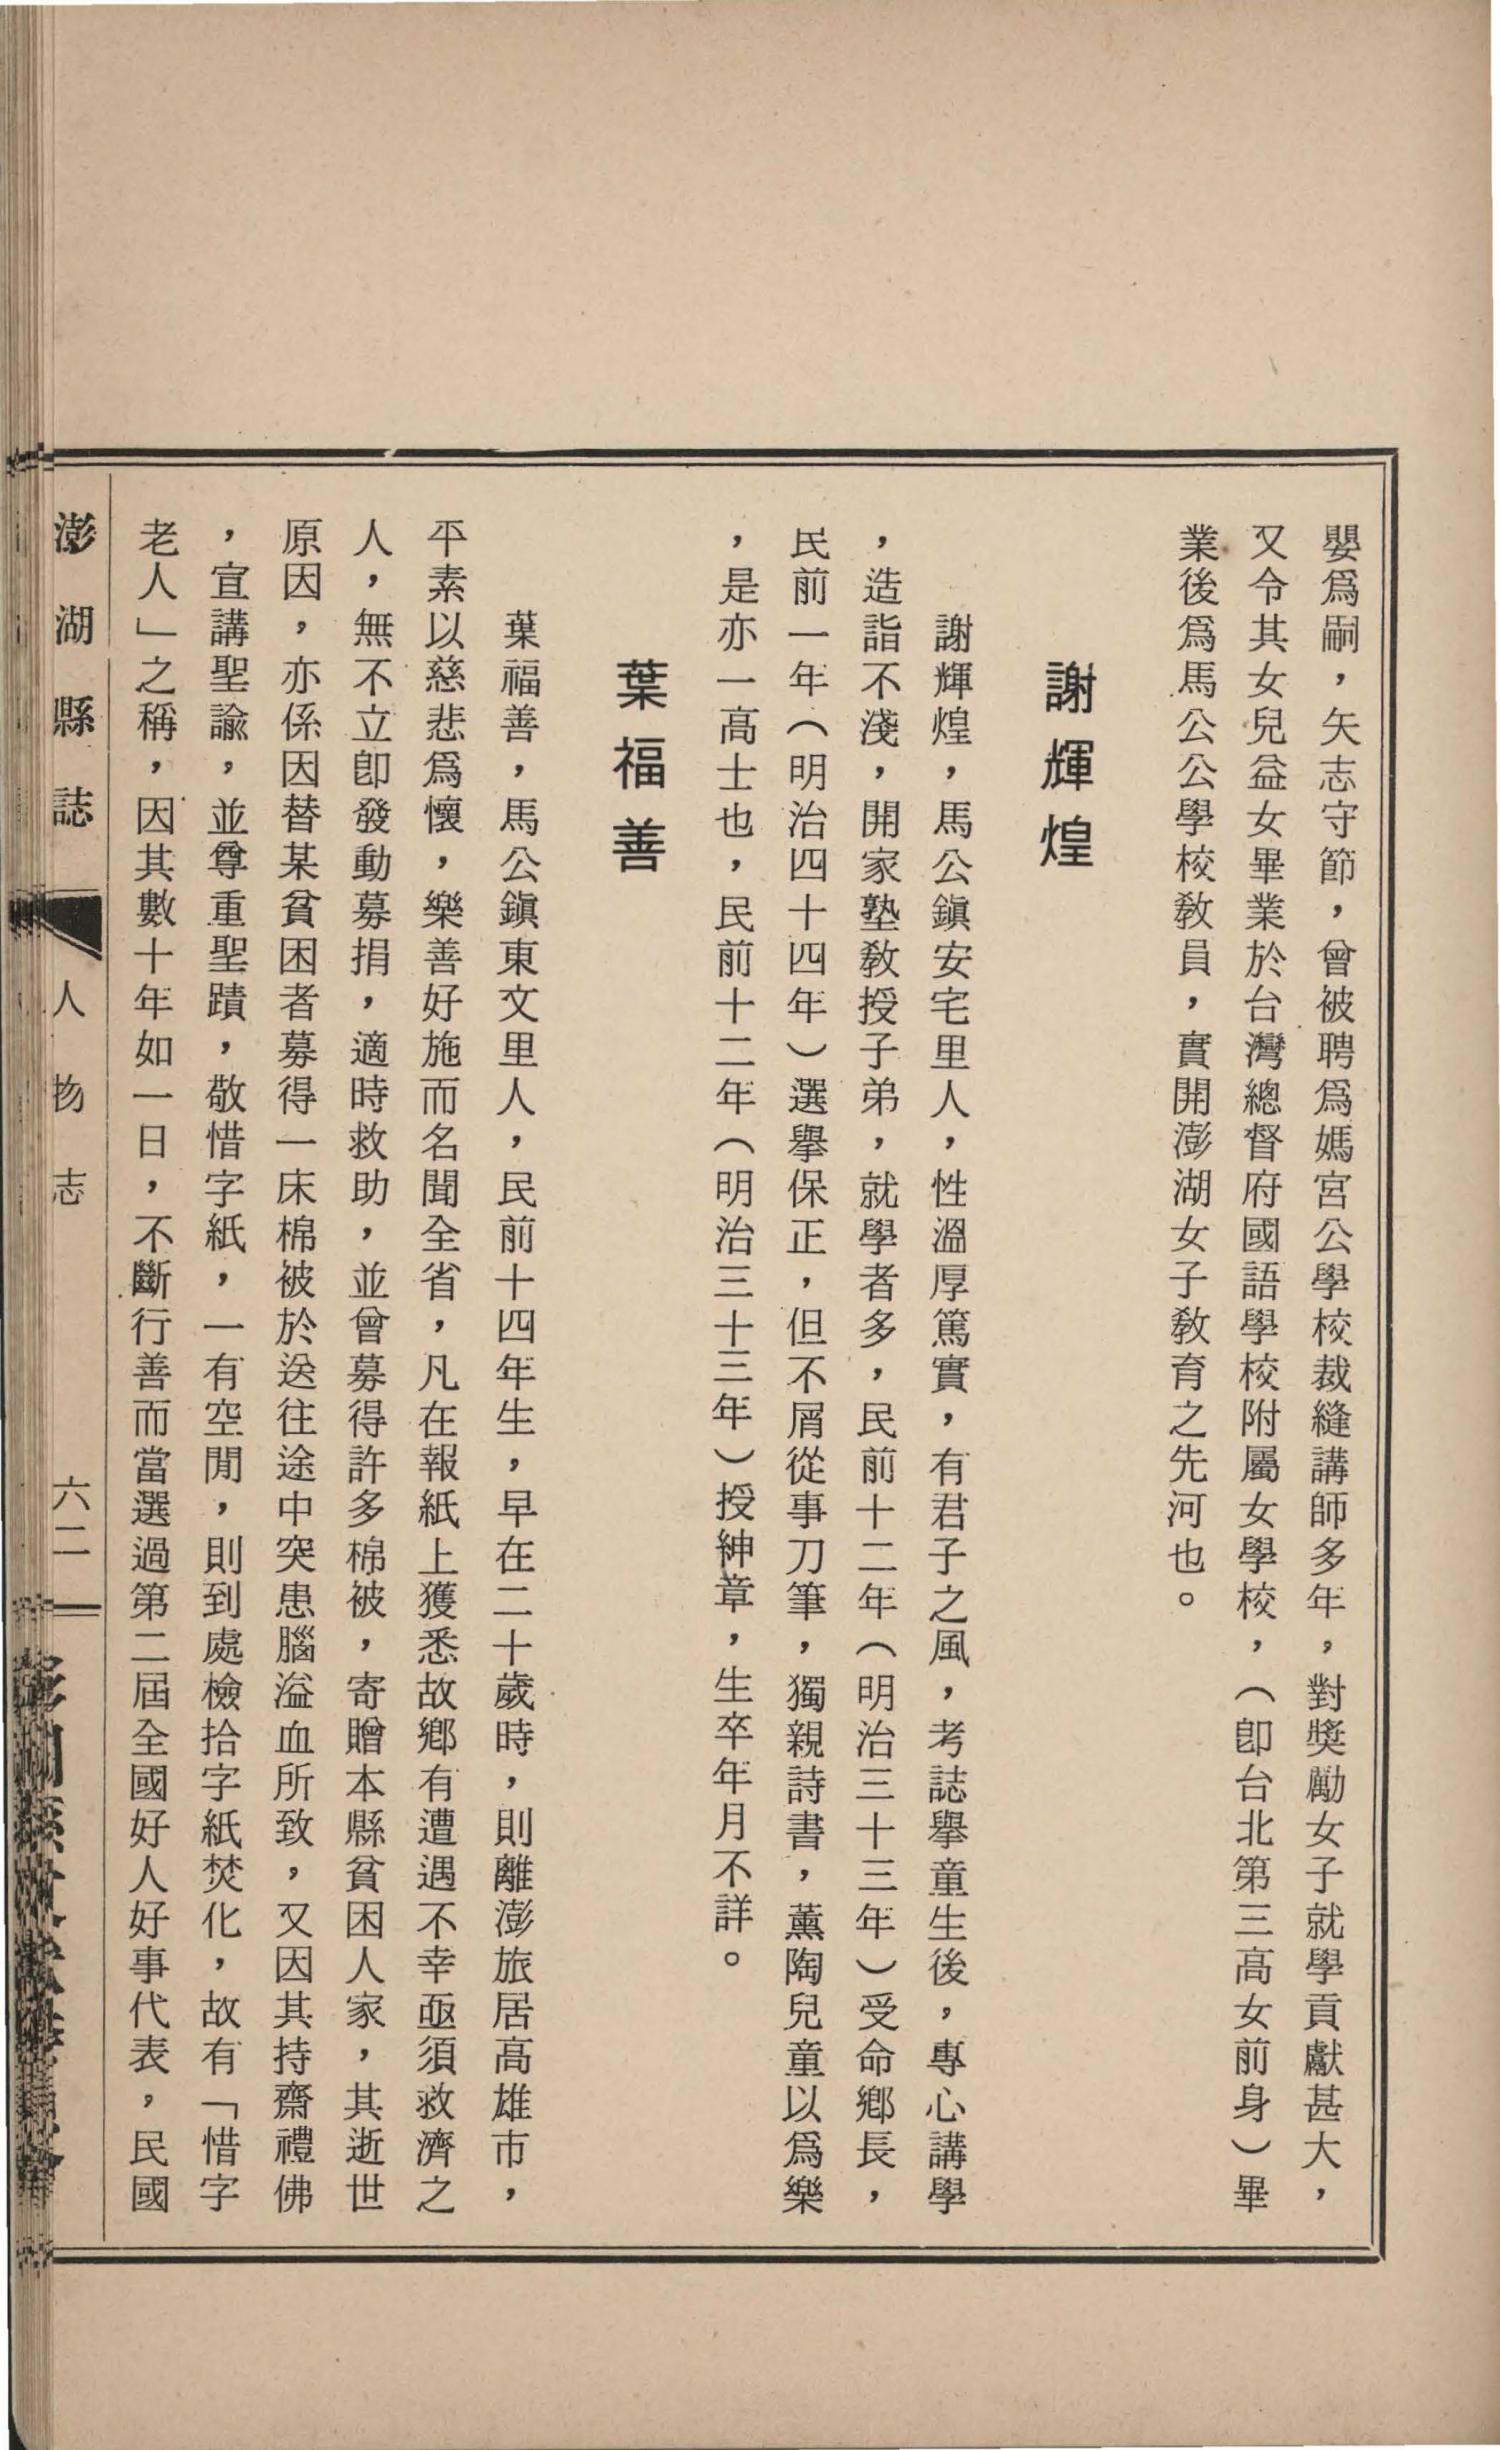 嬰爲嗣，矢志守節，曾被聘爲媽宮公學校裁縫講師多年，對獎勵女子就學貢獻甚大，
又令其女兒益女畢業於台灣總督府國語學校附屬女學校，（卽台北第三高女前身）畢
業後爲馬公公學校敎員，實開澎湖女子敎育之先河也。
謝輝煌
謝輝煌，馬公鎭安宅里人，性溫厚篤實，有君子之風，考誌擧童生後，專心講學
，造詣不淺，開家塾敎授子弟，就學者多，民前十二年（明治三十三年）受命鄕長，
民前一年（明治四十四年）選擧保正，但不屑從事刀筆，獨親詩書，薰陶兒童以爲樂
，是亦一高士也，民前十二年（明治三十三年）授紳章，生卒年月不詳。
葉福善
葉福善，馬公鎭東文里人，民前十四年生，早在二十歲時，則離澎旅居高雄市，
平素以慈悲爲懷，樂善好施而名聞全省，凡在報紙上獲悉故鄕有遭遇不幸亟須救濟之
人，無不立卽發動募捐，適時救助，並曾募得許多棉被，寄贈本縣貧困人家，其逝世
原因，亦係因替某貧困者募得一床棉被於送往途中突患腦溢血所致，又因其持齋禮佛
，宣講聖諭，並尊重聖蹟，敬惜字紙，一有空閒，則到處檢拾字紙焚化，故有「惜字
老人」之稱，因其數十年如一日，不斷行善而當選過第二屆全國好人好事代表，民國
澎湖縣誌 人物志 六二